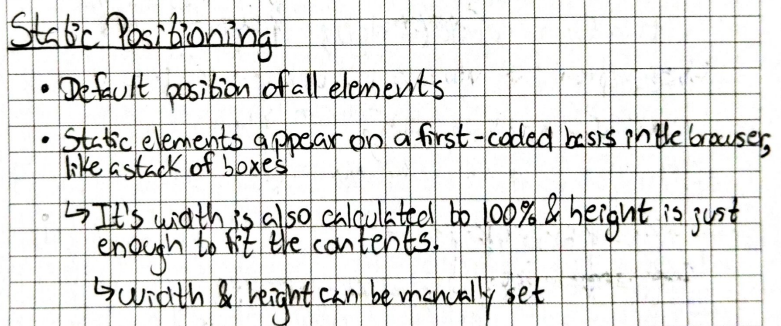 Static Positioning
• Default position of all elements
• Static elements appear on a first-coded basis in the browser,
like a stack of boxes
↳ It's width is also calculated to 100% & height is just
enough to fit the contents.
↳ width & height can be manually set